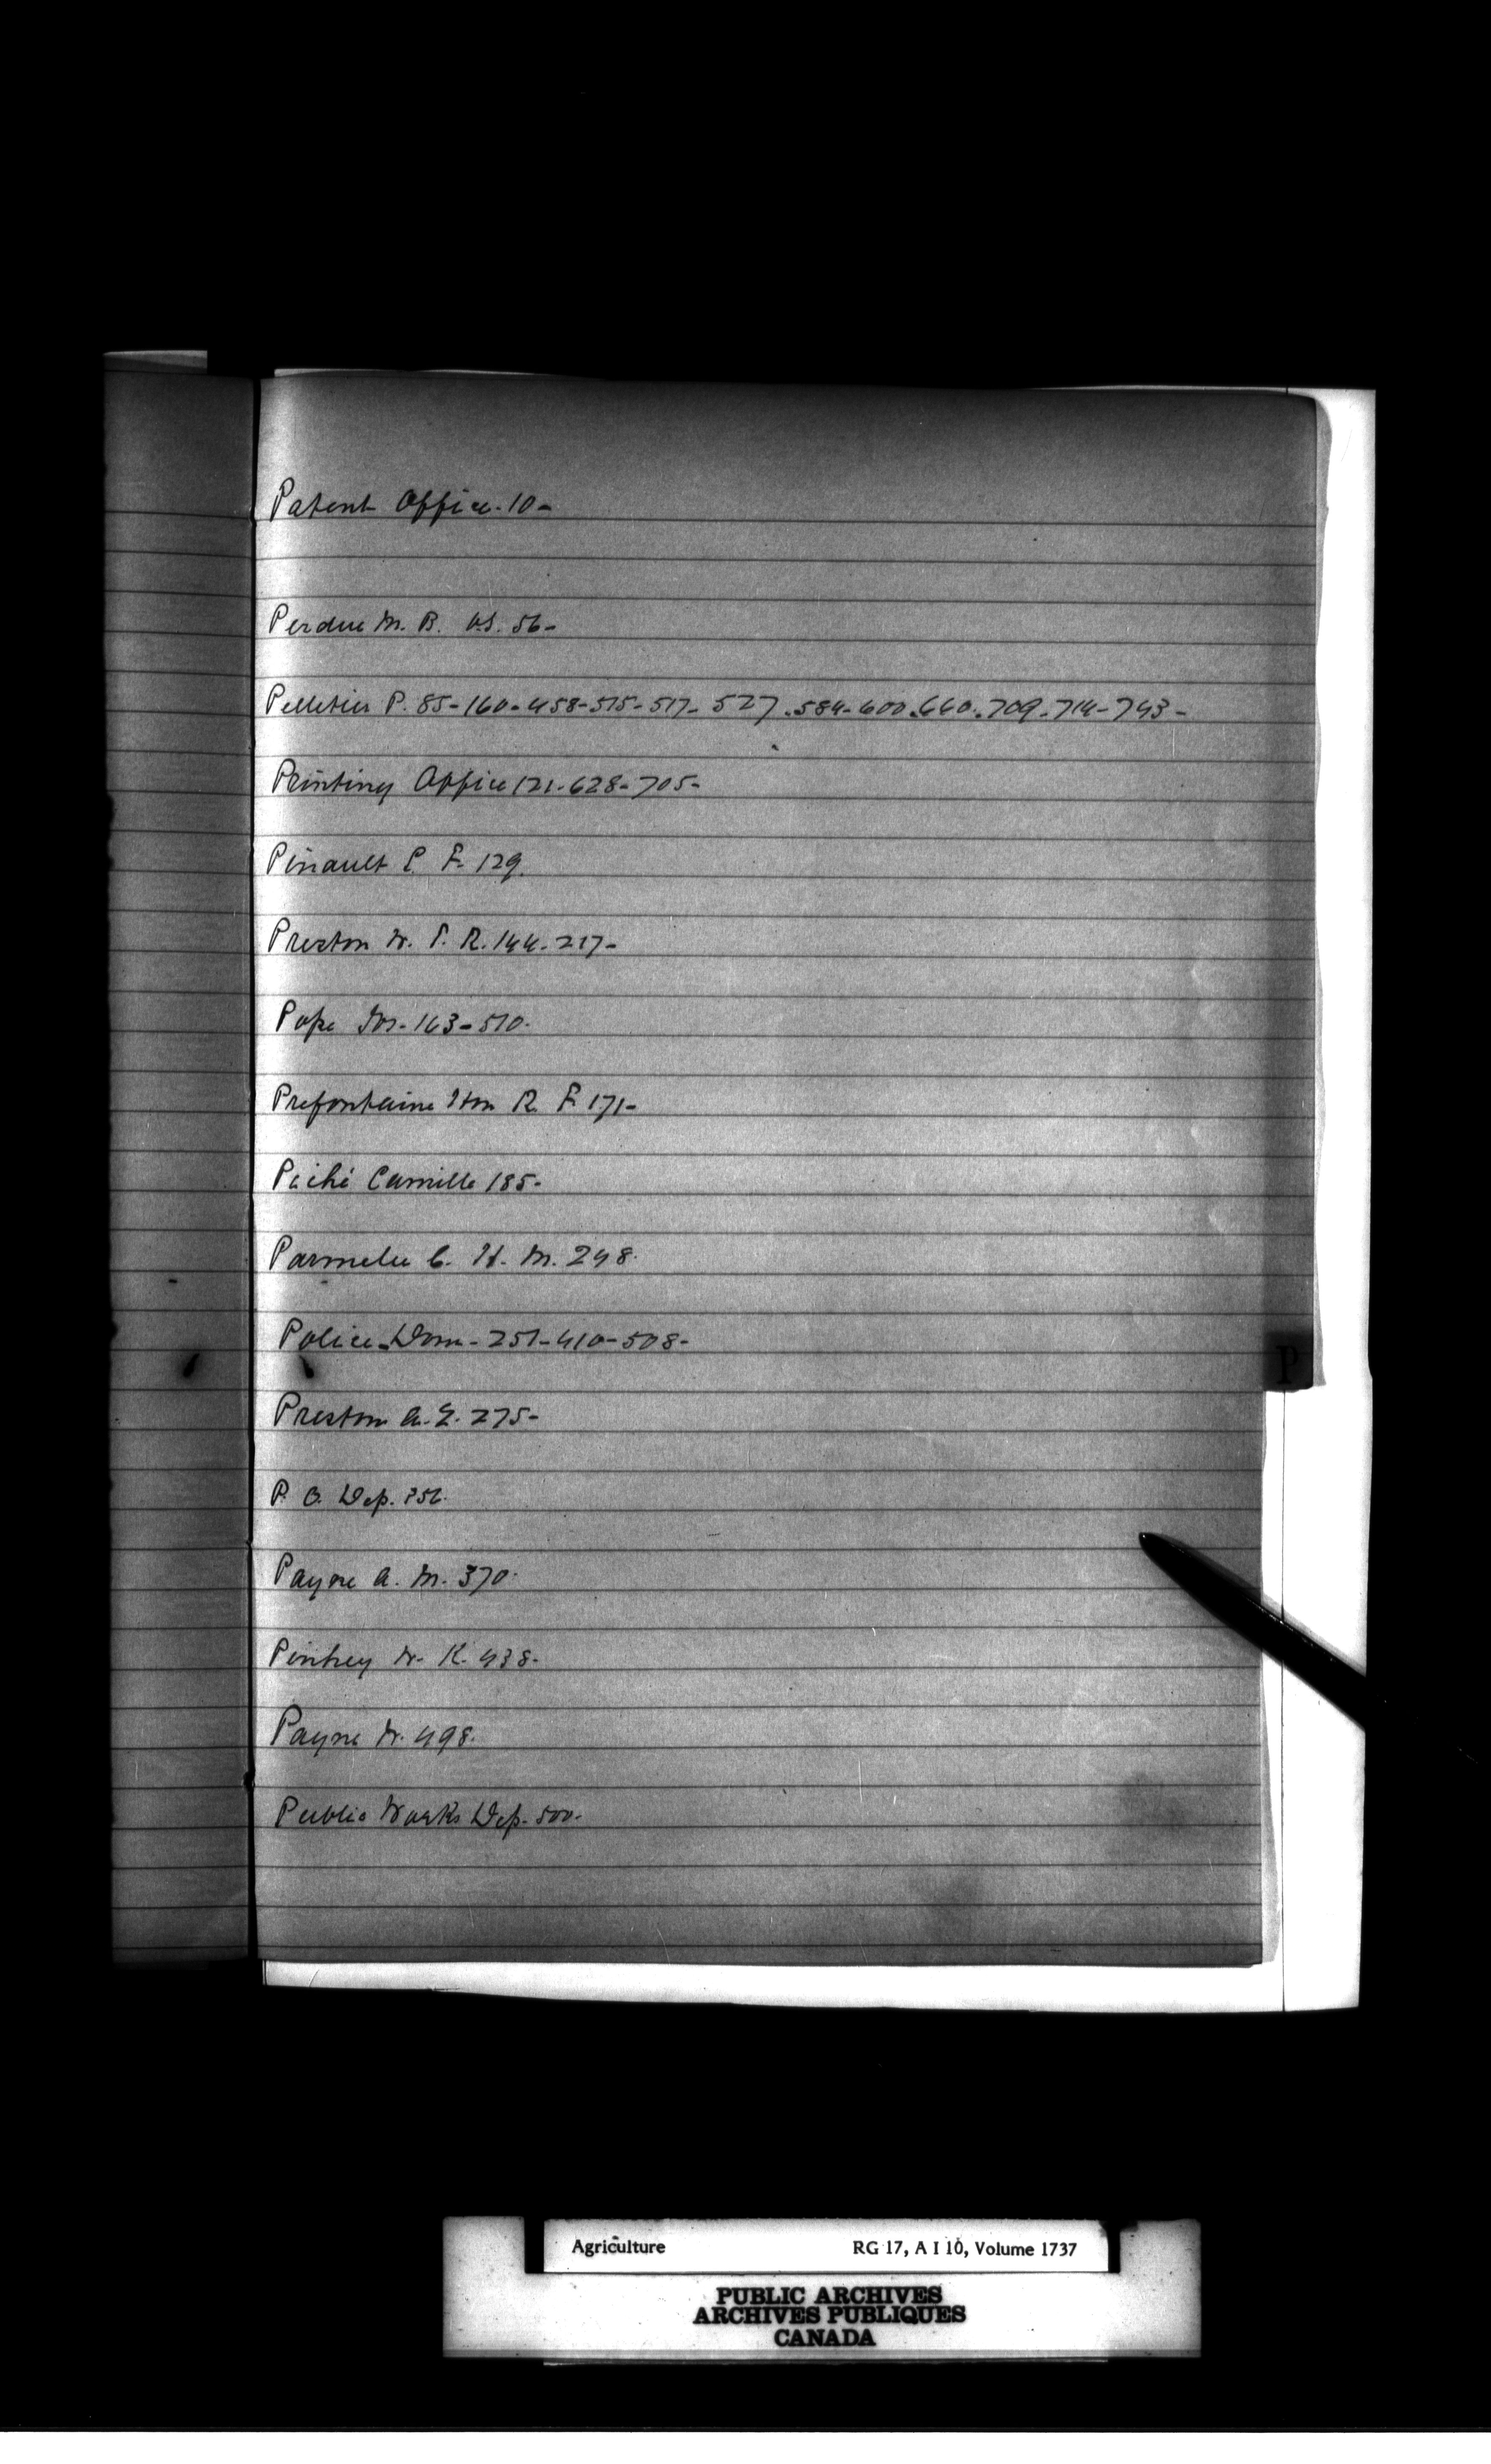 Patent Office. 10-
Perdue M. B. 56-
Pelletier P. 85-160-458-515-517-527.584-600.660.709.714-743-
Printing Office 121-628-705-
Pinault F. 129.
Preston W. T. R. 144. 217-
Pope Jos- 163-510.
Prefontaine Hon R. F. 171-
Piché Camille 185-
Parmelee C. H. M. 248.
Police Dom- 251-410-508-
Preston A. E. 275-
P. O. Dep. 356.
Payne A. M. 370.
Pinhey W. K. 438.
Payne W. 498.
Public Works Dep. 500.
P
Agriculture RG 17, A I 10, Volume 1737
PUBLIC ARCHIVES
ARCHIVES PUBLIQUES
CANADA